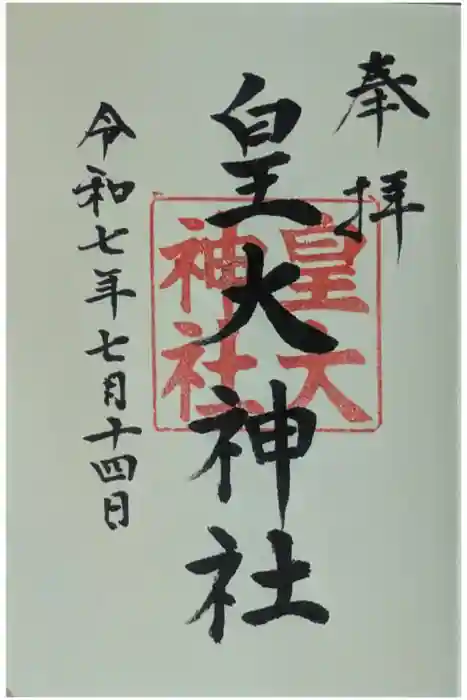 奉拝
皇大神社
皇大
神社
令和七年七月十四日